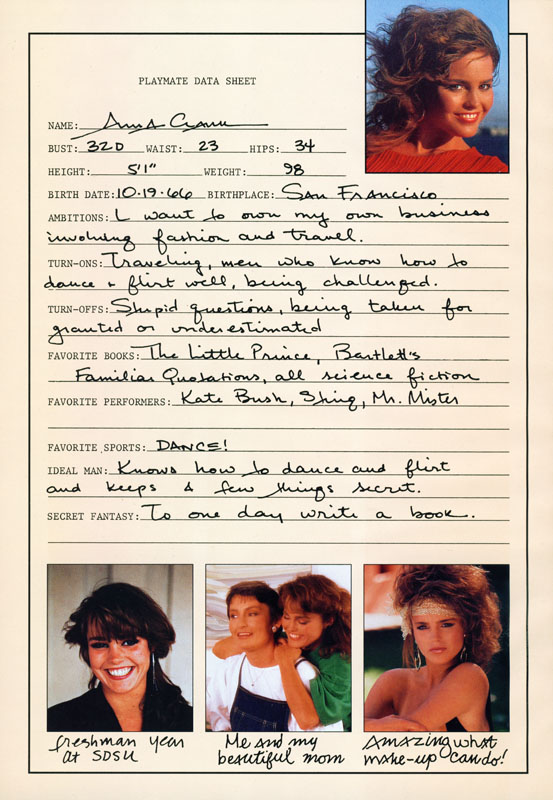 PLAYMATE DATA SHEET
NAME: Anna Clark
BUST: 32D WAIST: 23 HIPS: 34
HEIGHT: 5'1" WEIGHT: 98
BIRTH DATE: 10-19-66 BIRTHPLACE: San Francisco
AMBITIONS: I want to own my own business
involving fashion and travel.
TURN-ONS: Traveling, men who know how to
dance & flirt well, being challenged.
TURN-OFFS: Stupid questions, being taken for
granted or underestimated
FAVORITE BOOKS: The Little Prince, Bartlett's
Familiar Quotations, all science fiction
FAVORITE PERFORMERS: Kate Bush, Sting, Mr. Mister
FAVORITE SPORTS: DANCE!
IDEAL MAN: Knows how to dance and flirt
and keeps a few things secret.
SECRET FANTASY: To one day write a book.
freshman year
at SDSU
Me and my
beautiful mom
Amazing what
make-up can do!